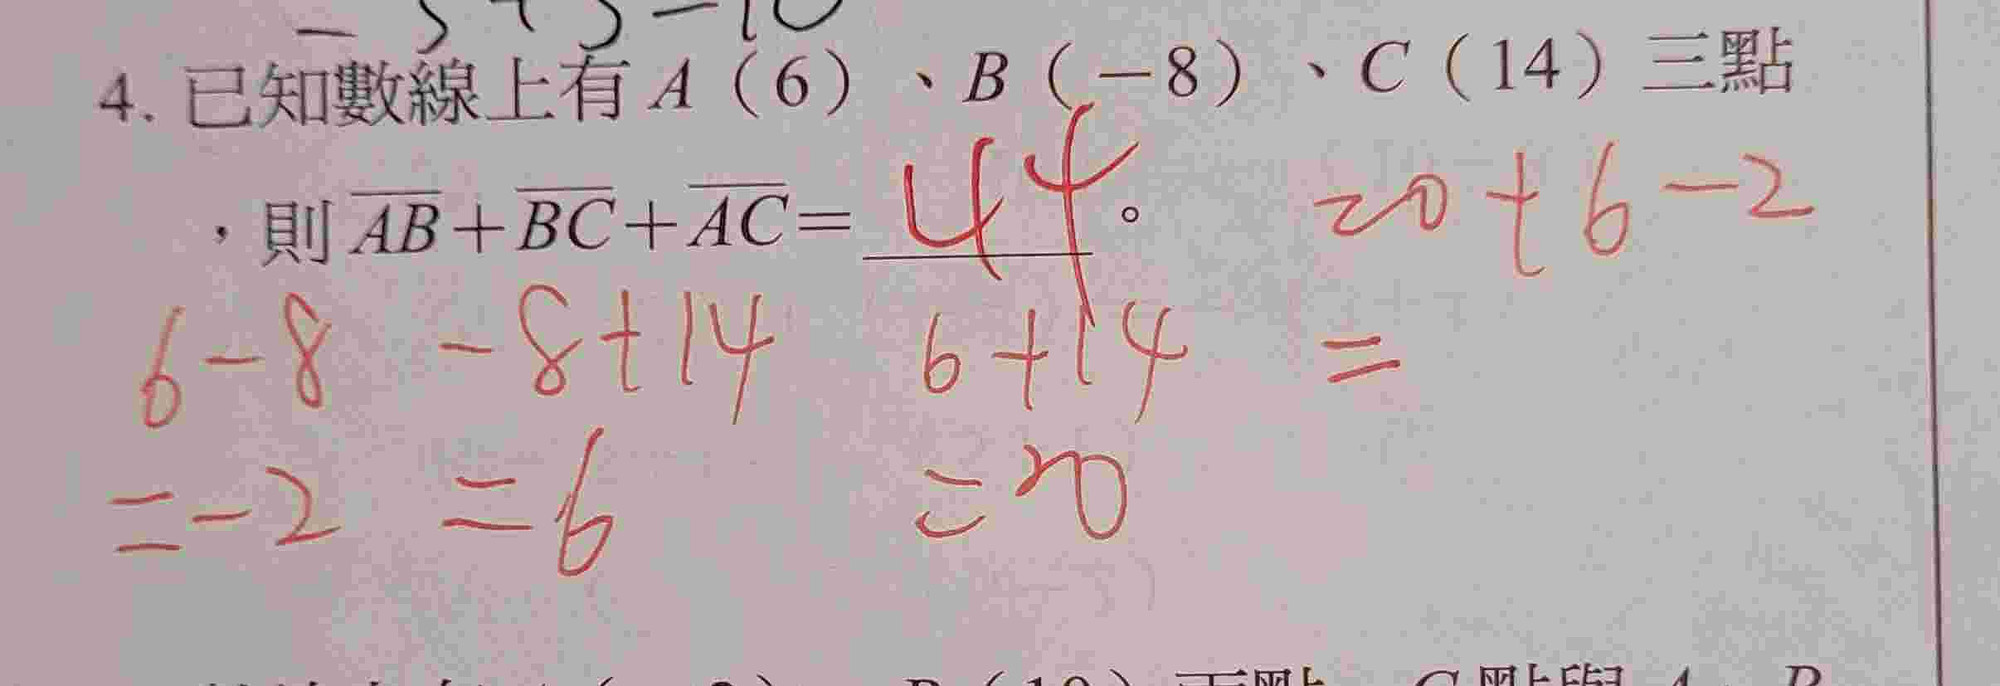 4. 已知數線上有 A（6）、B（－8）、C（14）三點
，則 AB＋BC＋AC＝ 44。
20+6-2
6-8 -8+14 6+14 =
=-2 =6 =20